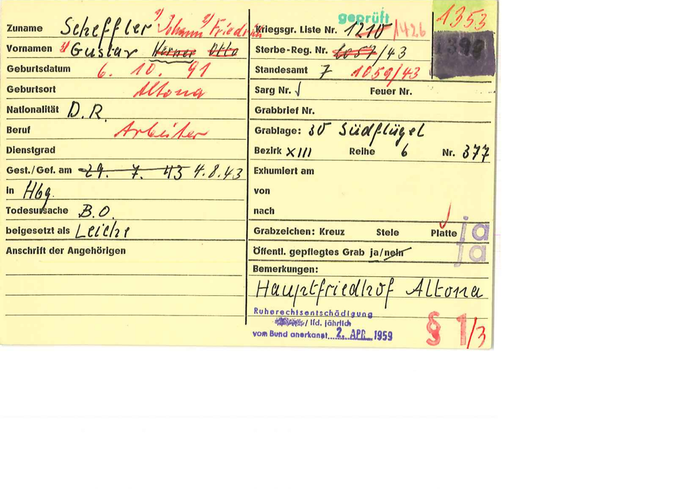 geprüft
1353
Zuname Scheffler 2) Johann 3) Friedrich
Vornamen 1) Gustav Werner Otto
Geburtsdatum 6. 10. 91
Geburtsort Altona
Nationalität D.R.
Beruf Arbeiter
Dienstgrad
Gest./Gef. am 29. 7. 43 4.8.43
in Hbg.
Todesursache B.O.
beigesetzt als Leiche
Anschrift der Angehörigen
Kriegsgr. Liste Nr. 1210 /1426
Sterbe-Reg. Nr. 1057/43
Standesamt 7 1059/43
Sarg Nr. Feuer Nr.
Grabbrief Nr.
Grablage: 30 Südflügel
Bezirk XIII Reihe 6 Nr. 377
Exhumiert am
von
nach
Grabzeichen: Kreuz Stele Platte ja
Öffentl. gepflegtes Grab ja/nein ja
Bemerkungen:
Hauptfriedhof Altona
Ruherechtsentschädigung
/ lfd. jährlich
vom Bund anerkannt 2. APR. 1959
§ 1/3